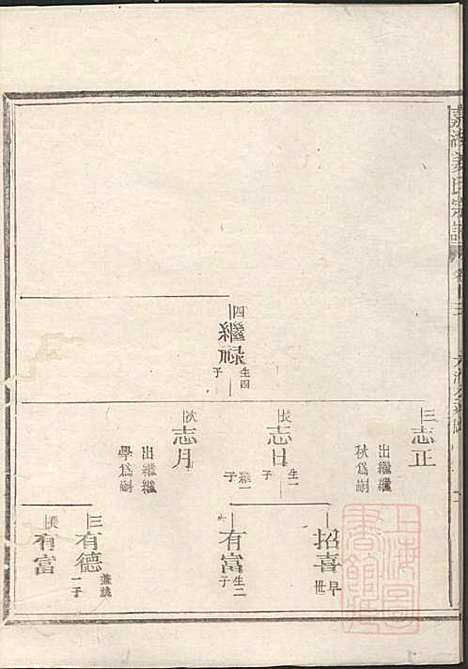 四
繼祿
生四
子
三
志正
出繼繼
秋爲嗣
長
志日
生一
子
繼一
子
次
志月
出繼繼
學爲嗣
招喜
早
世
有富
生二
子
三
有德
兼祧
一子
有富
上海圖
書館藏